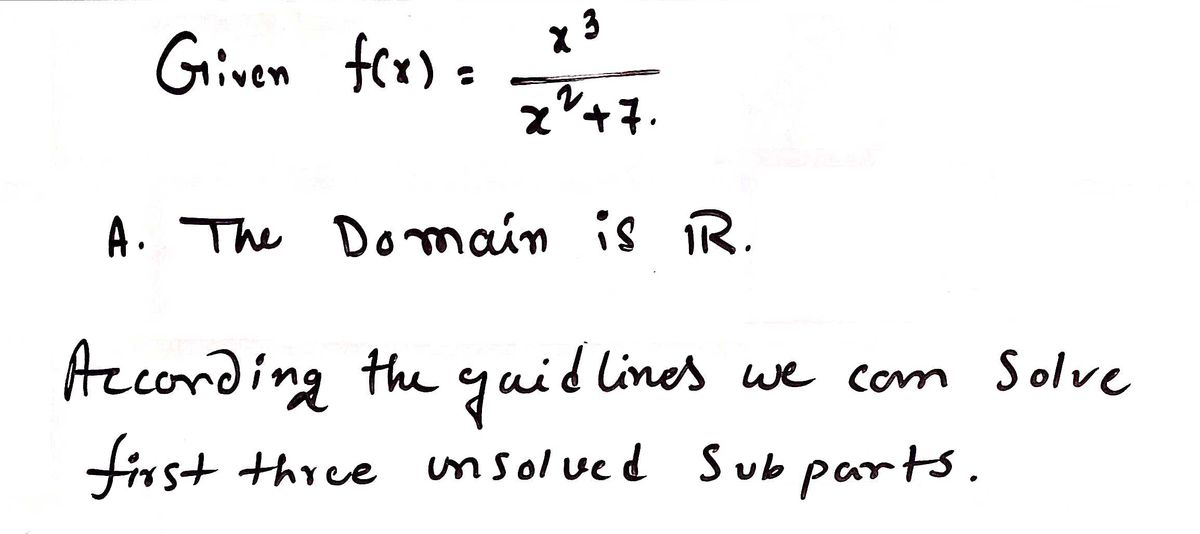 Given f(x) = x³ / x²+7.
A. The Domain is ℝ.
According the guidlines we can Solve
first three unsolved Sub parts.